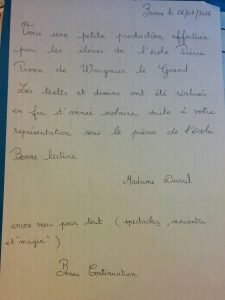 le 28/07/2016
Voici une petite production effectuée
par les élèves de l'école Pierre
de Wargnies le Grand.
Les textes et dessins ont été réalisés
en fin d'année scolaire suite à votre
représentation sous le préau de l'école.
Bonne lecture
Madame
encore merci pour tout (spectacle, rencontre
et "magie")
Bonne Continuation